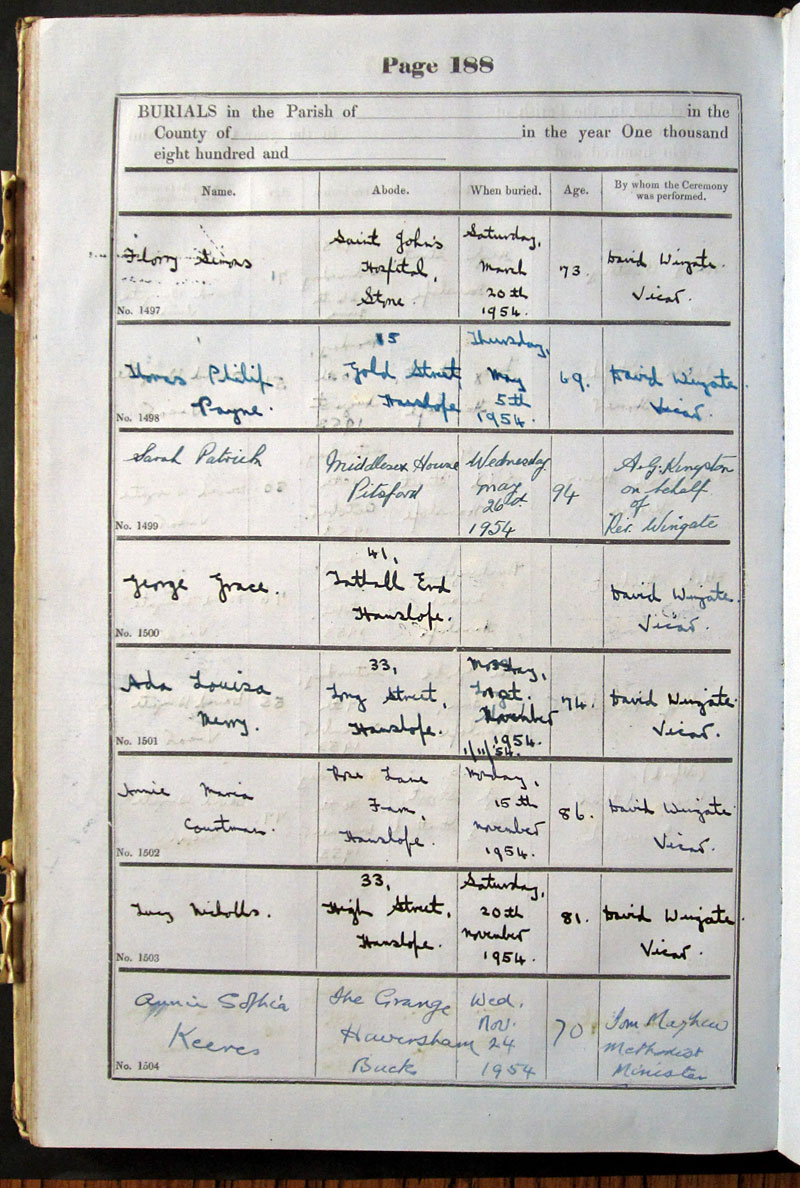 Page 188
BURIALS in the Parish of in the
County of in the year One thousand
eight hundred and
Name. Abode. When buried. Age. By whom the Ceremony was performed.
Florry Simons
Saint John's
Hospital,
Stone
Saturday,
March
20th
1954.
73.
David Wingate.
Vicar.
No. 1497
Thomas Philip
Payne.
15
Gold Street
Hanslope
Thursday,
May
5th
1954.
69.
David Wingate.
Vicar.
No. 1498
Sarah Patrick
Middlesex House
Pitsford
Wednesday
May
26
1954
94
A.G. Kingston
on behalf
of
Rev. Wingate
No. 1499
George Grace.
41,
Tathall End
Hanslope.
David Wingate.
Vicar.
No. 1500
Ada Louisa
Merry.
33,
Long Street,
Hanslope.
Monday,
1st.
November
1954.
1/11/54.
74.
David Wingate.
Vicar.
No. 1501
Annie Maria
Courtman.
Rose Lane
Farm,
Hanslope.
Monday,
15th
November
1954.
86.
David Wingate.
Vicar.
No. 1502
Lucy Nicholls.
33,
High Street,
Hanslope.
Saturday,
20th
November
1954.
81.
David Wingate.
Vicar.
No. 1503
Annie Sophia
Keeves
The Grange
Haversham
Bucks
Wed.
Nov.
24
1954
70.
Tom Mayhew
Methodist
Minister
No. 1504